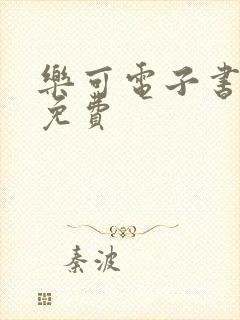 樂可電子書
免費
秦波